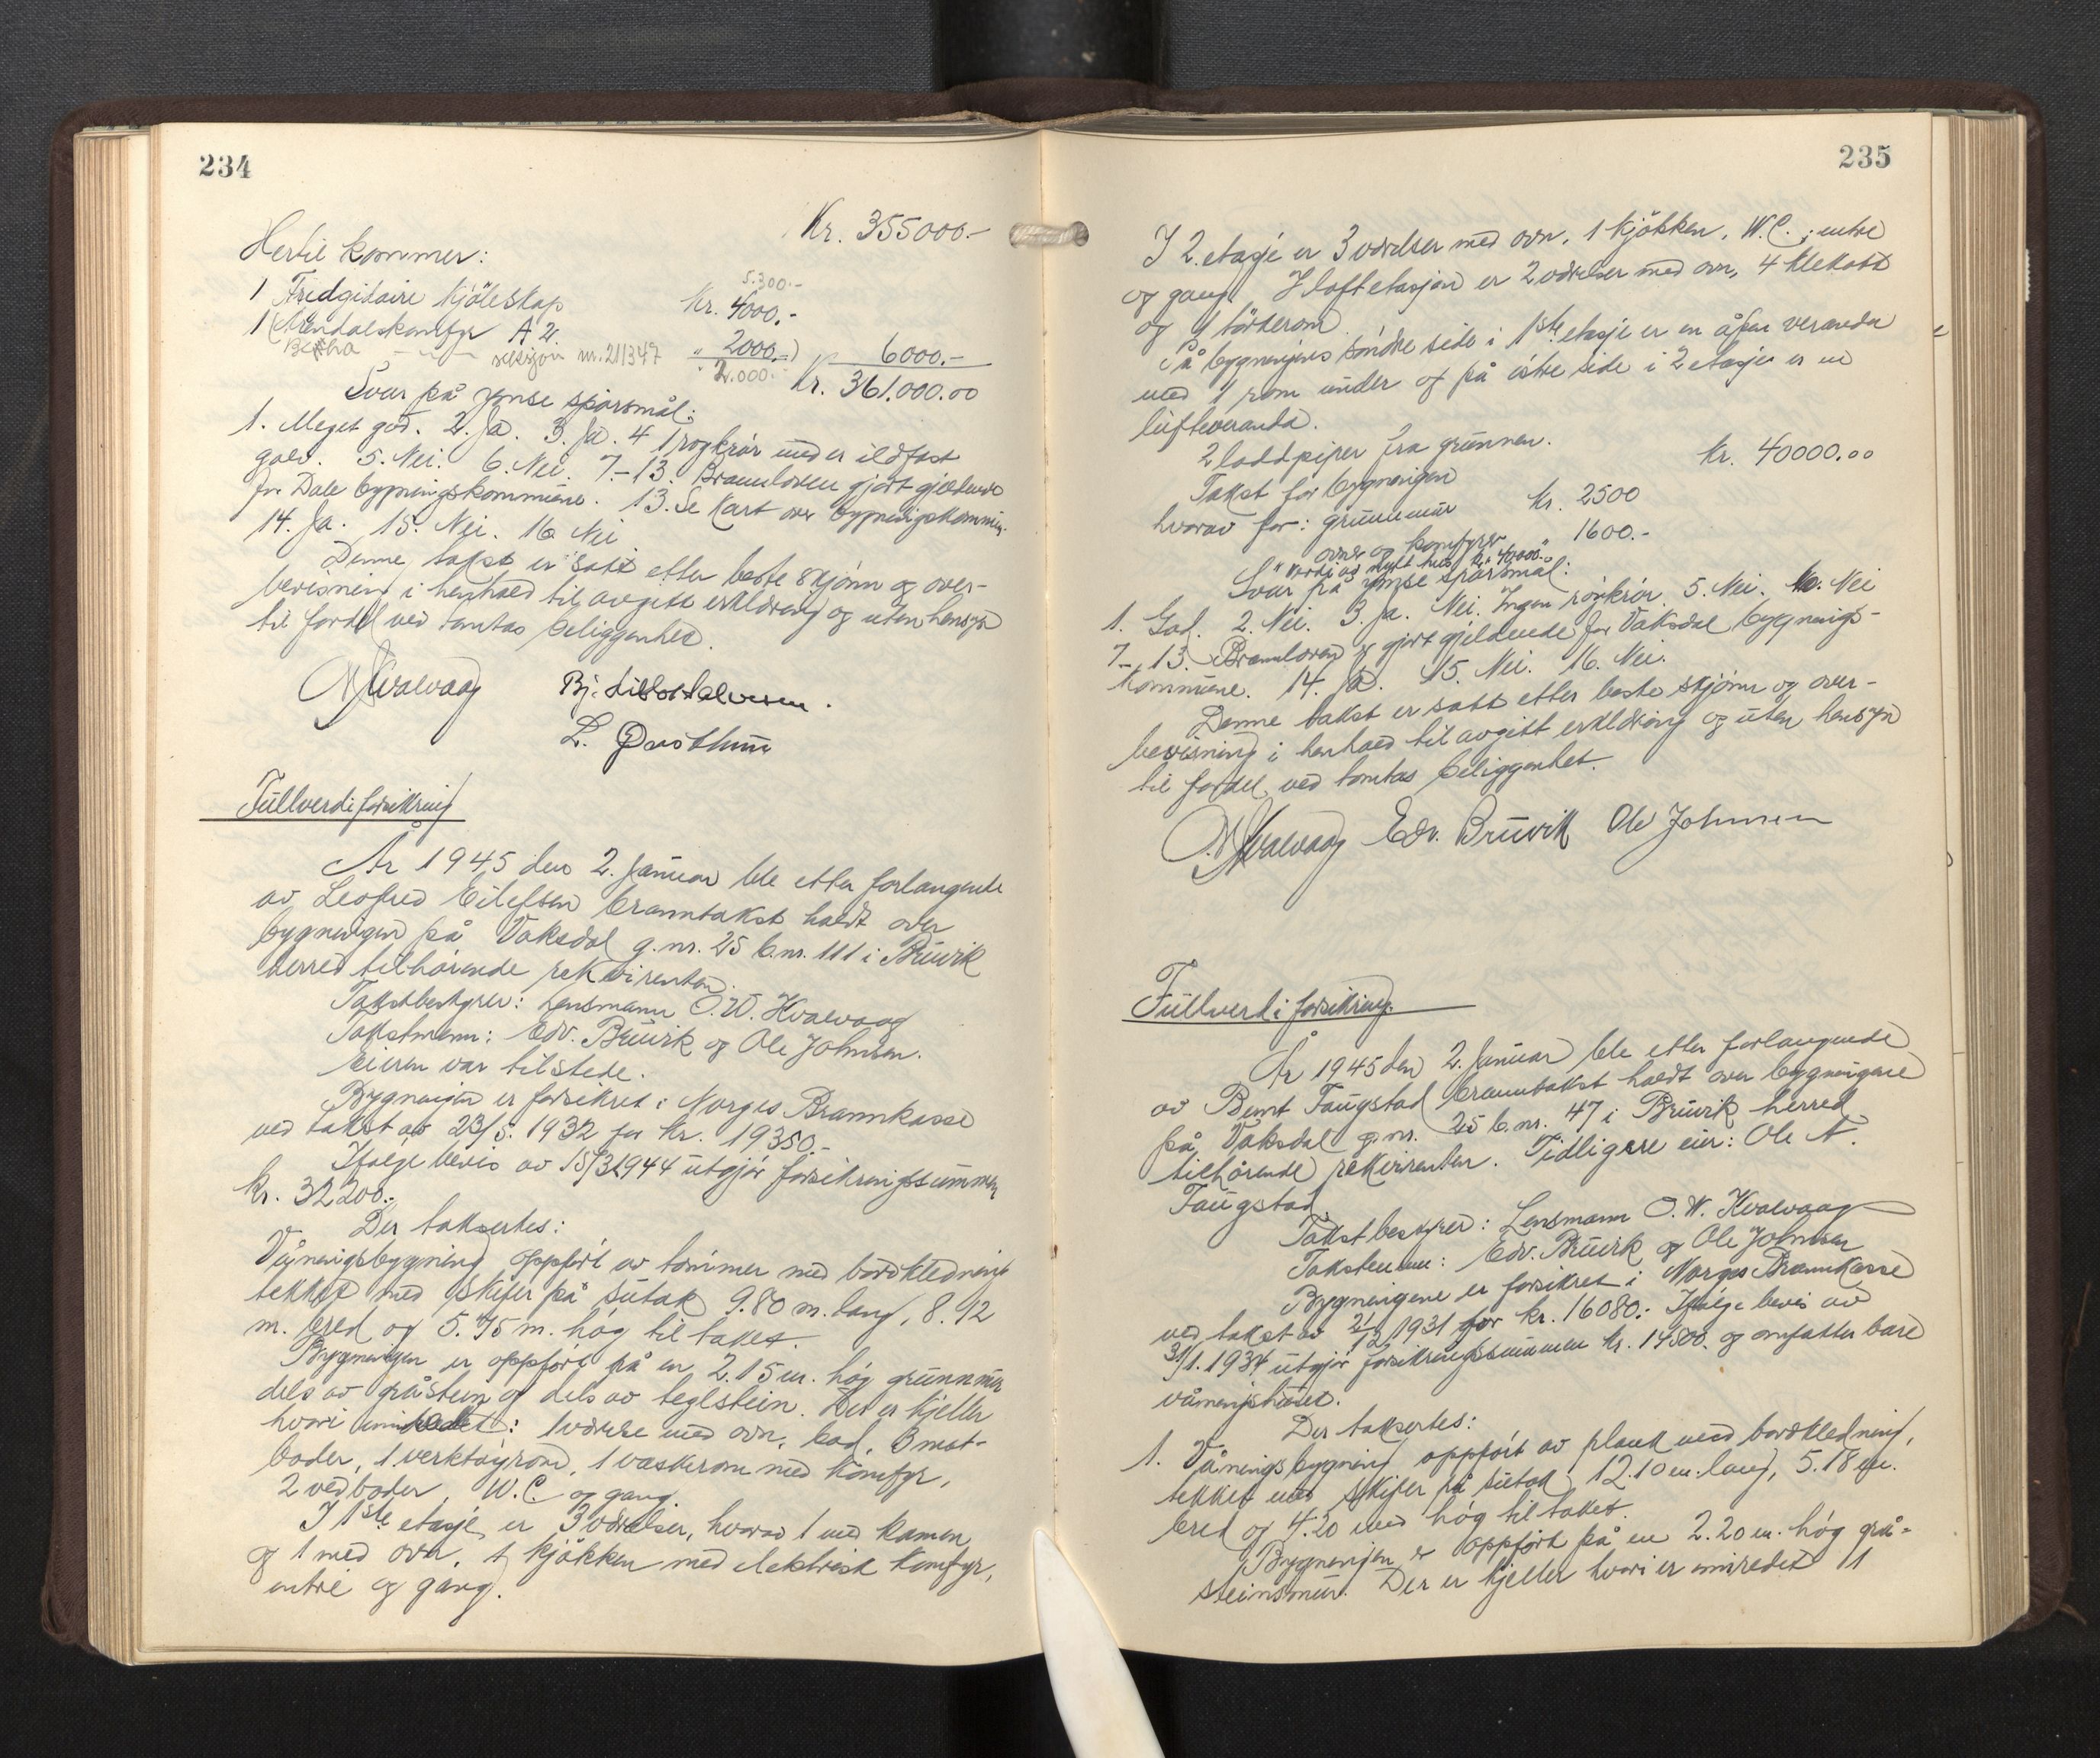 234
Kr. 355000.-
Hertil kommer:
5.300.-
1 Fridgidaire kjöleskap Kr. 4000.-
1 (Arendalskomfyr A 2. " 2000.-) 6000.-
Bertha - " - seksjon nr. 211347 " 2.000.- Kr. 361.000.00
Svar på ymse spörsmål:
1. Meget god. 2. Ja. 3. Ja. 4 1 rögkrör under ildfast
golv. 5. Nei. 6. Nei. 7.-13. Brannloven gjort gjeldende
for Dale bygningskommune. 13. Se kart over bygningskommun.
14. Ja. 15. Nei. 16 Nei.
Denne takst er satt etter beste skjönn og over-
bevisning i henhold til avgitt erklæring og uten hensyn
til fordel ved tomtas beliggenhet.
O W Kvalvaag Bj. Lillestalvesen.
L. Dyvsthun
Fullverdiforsikring
År 1945 den 2. Januar ble etter forlangende
av Leofred Eilefsen branntakst holdt over
bygningen på Vaksdal g.nr. 25 b.nr. 111 i Bruvik
herred tilhörende rekvirenten.
Takstbestyrer: Lensmann O. W. Kvalvaag
Takstmenn: Edv. Bruvik og Ole Johnsen.
Eieren var tilstede.
Bygningen er forsikret i Norges Brannkasse
ved takst av 23/5. 1932 for kr. 19350.-
Ifölge bevis av 15/3 1944 utgjör forsikringssummen
kr. 32200.-
Der taksertes:
Våningsbygning oppfört av tömmer med bordkledning
tekket med skifer på sutak 9.80 m. lang, 8.92
m. bred og 5.45 m. hög til taket.
Bygningen er oppfört på en 2.15 m. hög grunnmur
dels av gråstein og dels av teglstein. Der er kjeller
hvori innredet: 1 værelse med ovn, bad, 3 mat-
boder, 1 verktöyrom, 1 vaskerom med komfyr,
2 vedboder, W.C. og gang.
I 1ste etasje er 3 værelser, hvorav 1 med kamin
og 1 med ovn, 1 kjökken med elektrisk komfyr,
entré og gang.
235
I 2. etasje er 3 værelser med ovn, 1 kjökken, W.C., entre
og gang. I loftetasjen er 2 værelser med ovn, 4 klekott
og 1 törkerom.
På bygningens söndre side i 1ste etasje er en åpen veranda
med 1 rom under og på östre side i 2 etasje er en
luftveranda.
2 loddpiper fra grunnen.
Takst for bygningen kr. 40000.00
hvorav for: grunnmur kr. 2500
" ovner og komfyrer 1600.-
" Verdi av nytt hus kr. 40000.-
Svar på ymse spörsmål:
1. God. 2. Nei. 3. Ja. Nei. Ingen rögkrör. 5. Nei. 6. Nei
7-13. Brannloven er gjort gjeldende for Vaksdal bygnings-
kommune. 14. Ja. 15. Nei. 16. Nei.
Denne takst er satt etter beste skjönn og over-
bevisning i henhold til avgitt erklæring og uten hensyn
til fordel ved tomtas beliggenhet.
O W Kvalvaag Edv. Bruvik Ole Johnsen
Fullverdiforsikring.
År 1945 den 2. Januar ble etter forlangende
av Bernt Faugstad branntakst holdt over bygningene
på Vaksdal g.nr. 25 b.nr. 47 i Bruvik herred
tilhörende rekvirenten. Tidligere eier: Ole N.
Faugstad.
Takstbestyrer: Lensmann O. W. Kvalvaag
Takstmenn: Edv. Bruvik og Ole Johnsen
Bygningene er forsikret i Norges Brannkasse
ved takst av 21/12 1931 for kr. 16080.- Ifölge bevis av
31/1. 1934 utgjör forsikringssummen kr. 14500. og omfatter bare
våningshuset.
Der taksertes:
1. Våningsbygning oppfört av plank med bordkledning,
tekket med skifer på sutak 12.10 m. lang, 5.18 m.
bred og 4.20 med hög til taket.
Bygningen er oppfört på en 2.20 m. hög grå-
steinsmur. Der er kjeller hvori er innredet 1